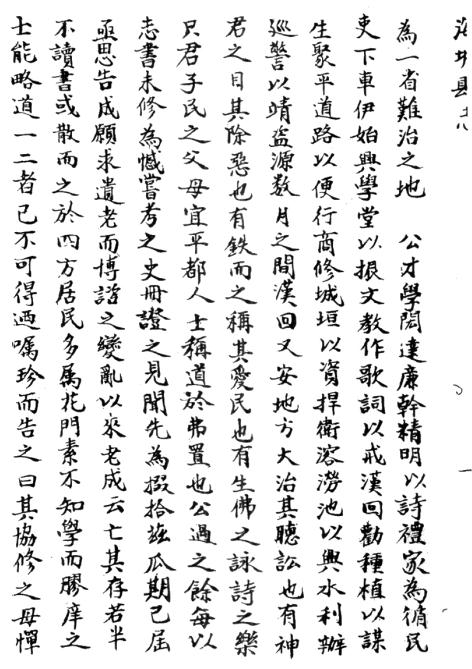 為一省難治之地　公才學閎達廉幹精明以詩禮家為循民
吏下車伊始興學堂以振文教作歌詞以戒漢回勸種植以謀
生聚平道路以便行商修城垣以資捍衛濬澇池以興水利辦
巡警以靖盜源数月之間漢回乂安地方大治其聽訟也有神
君之目其除惡也有鉄面之稱其爱民也有生佛之詠詩之樂
只君子民之父母宜平都人士稱道於弗置也公過之餘每以
志書未修為憾嘗考之史冊證之見聞先為掇拾兹瓜期已屆
亟思告成願求遺老而博諮之變亂以來老成云亡其存若半
不讀書或散而之於四方居民多属花門素不知學而膠庠之
士能略道一二者已不可得迺嘱珍而告之曰其協修之毋憚